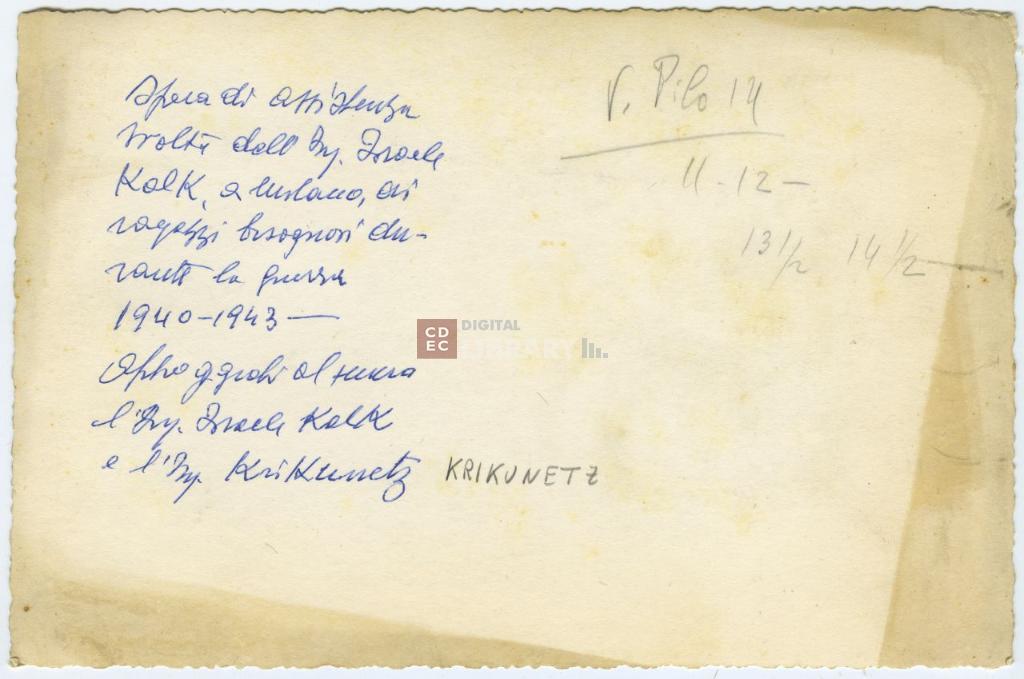 Opera di assistenza
svolta dall'Ing. Israele
Kalk, a Milano, ai
ragazzi bisognosi du-
rante la guerra
1940-1943 —
Appoggiati al muro
l'Ing. Israele Kalk
e l'Ing. KriKunetz KRIKUNETZ
V. Pilo 14
11 - 12 -
13 1/2 14 1/2
CDEC DIGITAL
LIBRARY